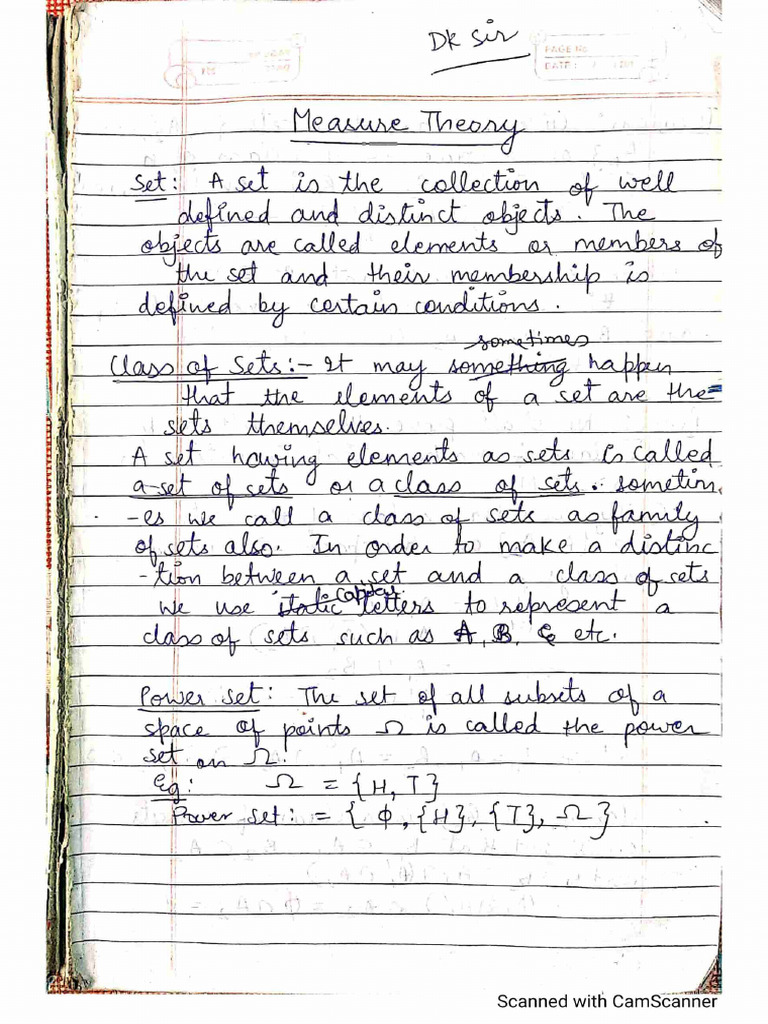 DK Sir
PAGE No.
DATE:
Measure Theory
Set: A set is the collection of well
defined and distinct objects. The
objects are called elements or members of
the set and their membership is
defined by certain conditions.
sometimes
Class of Sets:- It may something happen
that the elements of a set are the
sets themselves.
A set having elements as sets is called
a set of sets or a class of sets. sometim
-es we call a class of sets as family
of sets also. In order to make a distinc
-tion between a set and a class of sets
we use italic letters to represent a
class of sets such as A, B, C etc.
Power set: The set of all subsets of a
space of points Ω is called the power
set on Ω.
Eg: Ω = {H, T}
Power set: = { ϕ, {H}, {T}, Ω }
Scanned with CamScanner